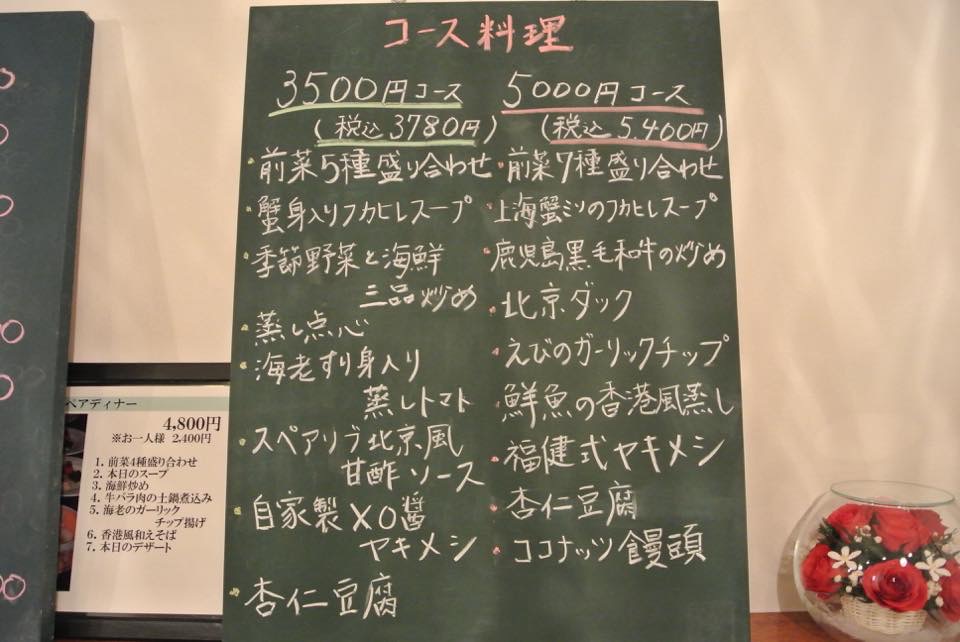 コース料理
3500円コース
(税込3780円)
前菜5種盛り合わせ
蟹身入りフカヒレスープ
季節野菜と海鮮
三品炒め
蒸し点心
海老すり身入り
蒸しトマト
スペアリブ北京風
甘酢ソース
自家製XO醤
ヤキメシ
杏仁豆腐
5000円コース
(税込5.400円)
前菜7種盛り合わせ
上海蟹ミソのフカヒレスープ
鹿児島黒毛和牛の炒め
北京ダック
えびのガーリックチップ
鮮魚の香港風蒸し
福健式ヤキメシ
杏仁豆腐
ココナッツ饅頭
ペアディナー
4,800円
※お一人様 2,400円
1. 前菜4種盛り合わせ
2. 本日のスープ
3. 海鮮炒め
4. 牛バラ肉の土鍋煮込み
5. 海老のガーリック
チップ揚げ
6. 香港風和えそば
7. 本日のデザート